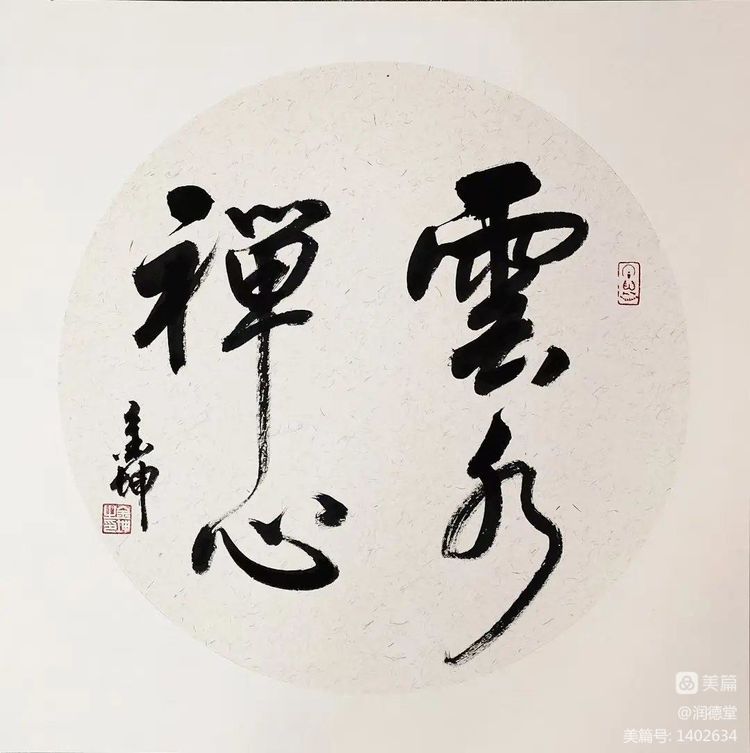 雲水
禪心
金坤
美篇
@润德堂
美篇号: 1402634